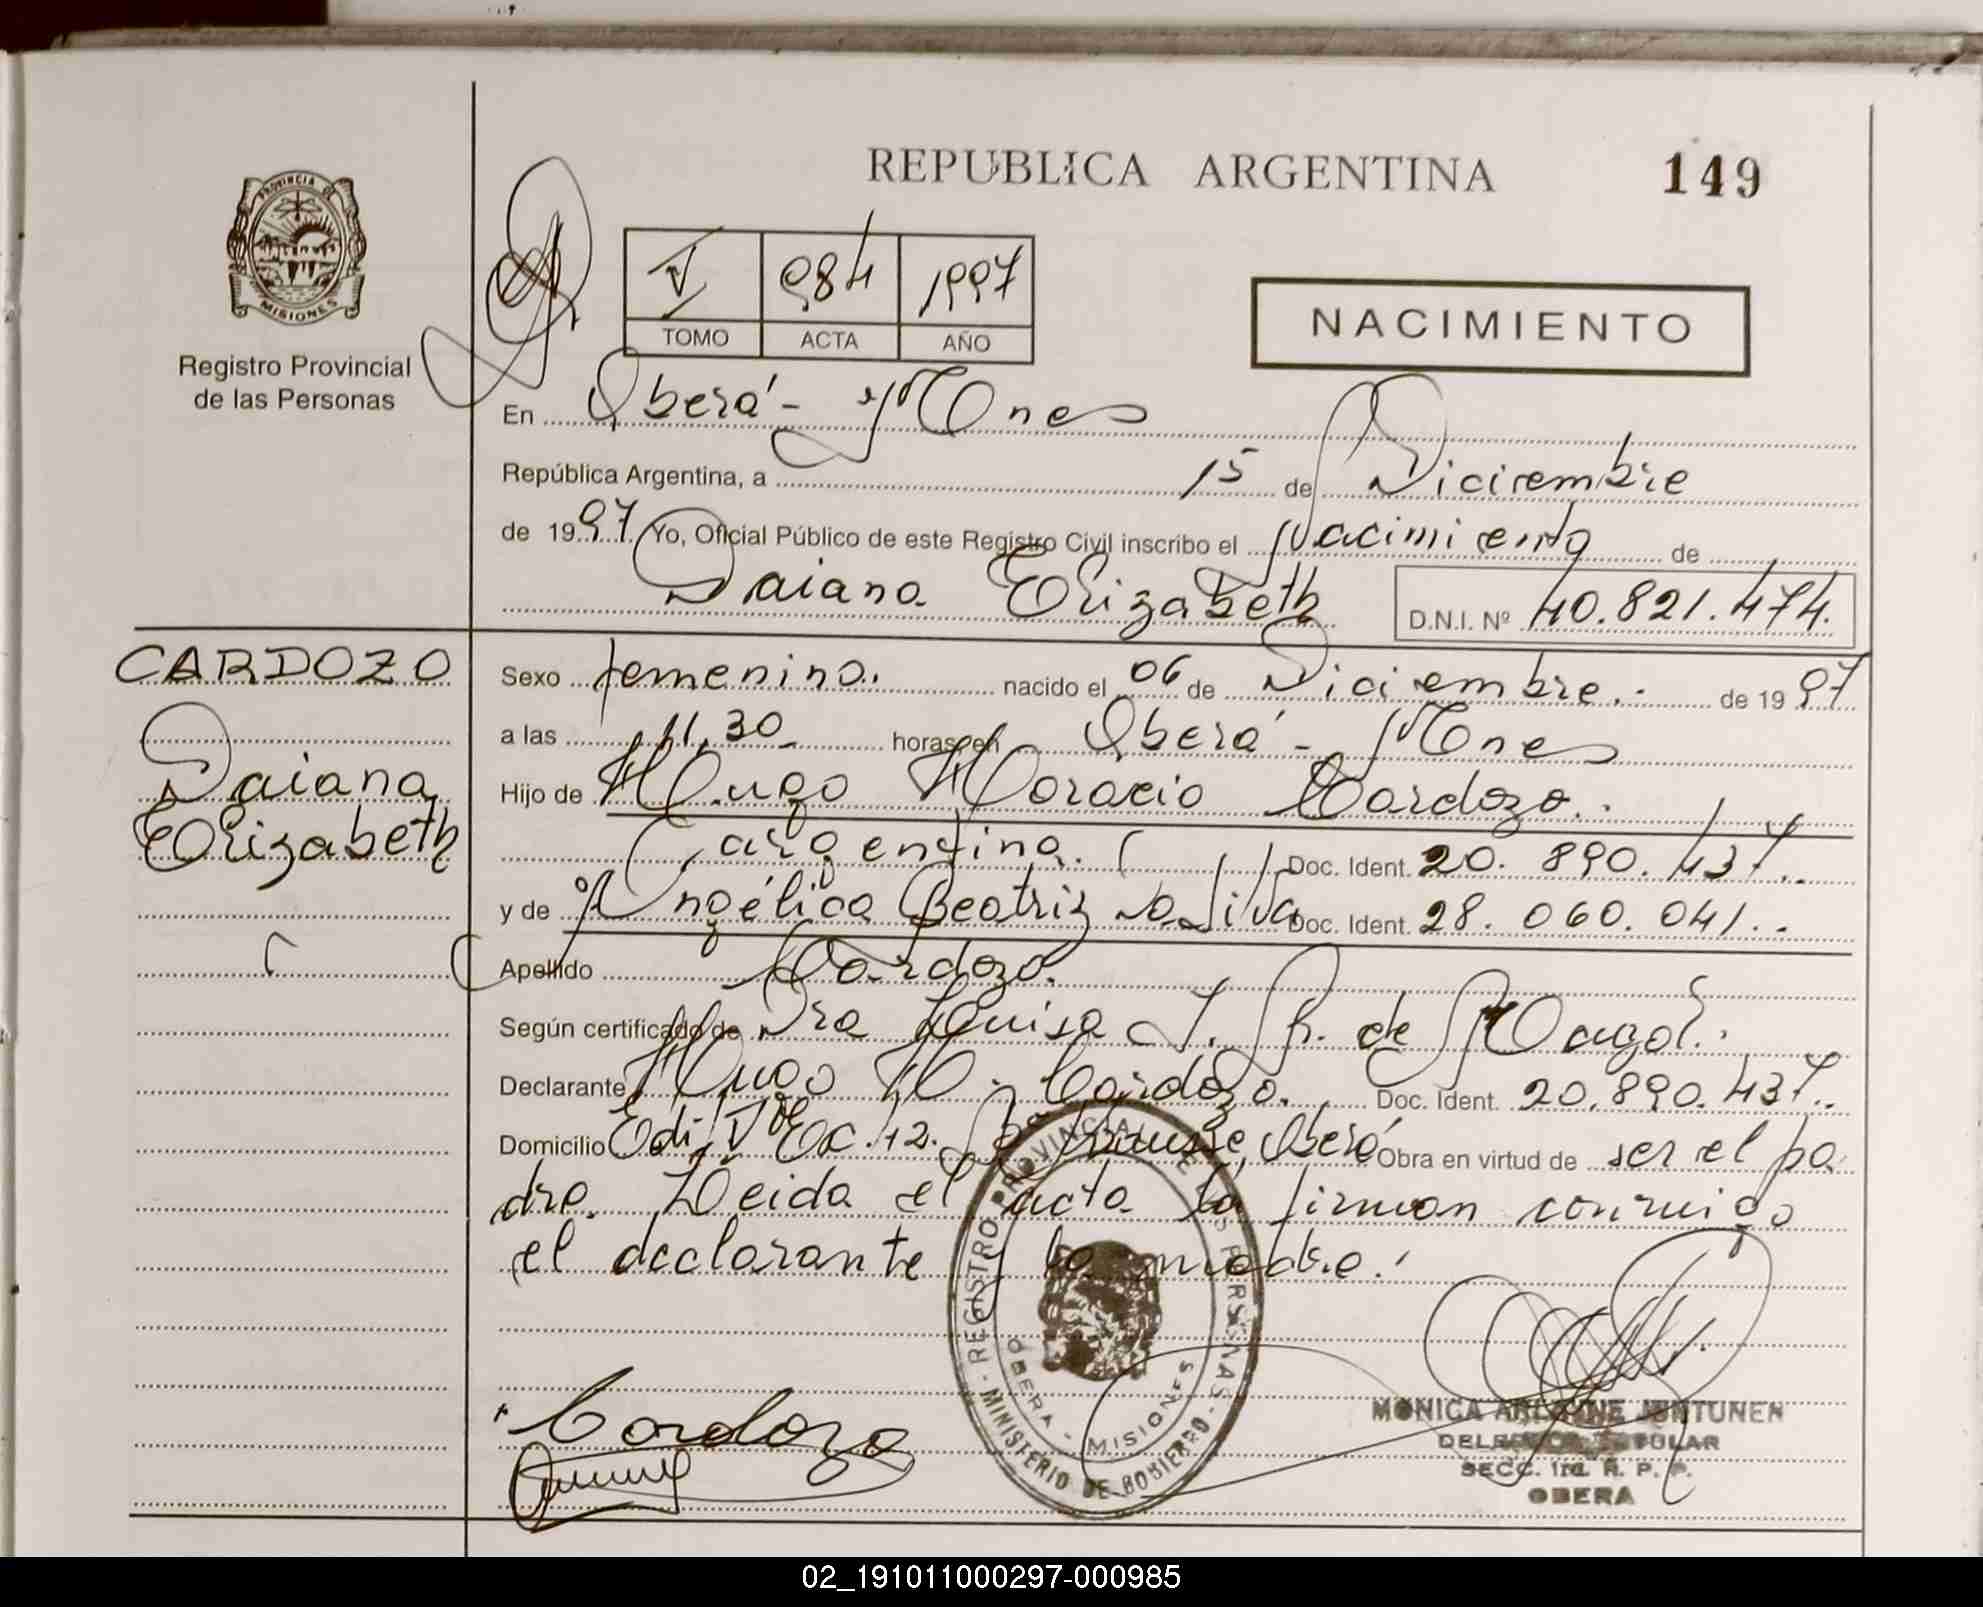 REPUBLICA ARGENTINA 149
PROVINCIA DE
MISIONES
Registro Provincial
de las Personas
V 984 1997
TOMO ACTA AÑO
NACIMIENTO
En Oberá - Mnes
República Argentina, a 15 de Diciembre
de 1997 Yo, Oficial Público de este Registro Civil inscribo el Nacimiento de
Daiana Elizabeth D.N.I. Nº 40.821.474.
CARDOZO
Daiana
Elizabeth
Sexo femenino. nacido el 06 de Diciembre. de 1997
a las 11,30 horas en Oberá - Mnes
Hijo de Hugo Horacio Cardozo.
argentino. Doc. Ident. 20.890.437.
y de Angélica Beatriz Da Silva Doc. Ident. 28.060.041.
Apellido Cardozo.
Según certificado de Dra Luisa J. de
Declarante Hugo H. Cardozo. Doc. Ident. 20.890.437.
Domicilio Edif. V Esc. 12. Oberá Obra en virtud de ser el pa
dre. Leida el acta la firman conmigo
el declarante y la madre.
REGISTRO PROVINCIAL DE LAS PERSONAS - MINISTERIO DE GOBIERNO -
OBERA - MISIONES
Cardozo
MONICA ARLENNE JUNTUNEN
DELEGADA TITULAR
SECC. 1ra. R. P. P.
OBERA
02_191011000297-000985